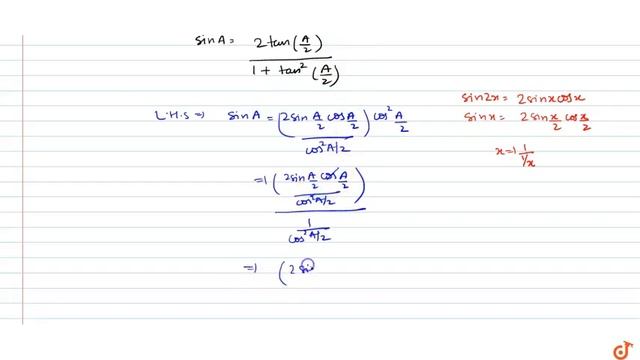 sinA = 2tan(A/2) / 1 + tan²(A/2)
L.H.S => sinA = (2sin A/2 cos A/2 / cos²A/2) cos² A/2
=) (2sin A/2 cos A/2 / cos²A/2) / 1/cos²A/2
=) (2 sin
sin2x = 2sinx cosx
sinx = 2sin x/2 cos x/2
x =) 1/1/x
doubtnut